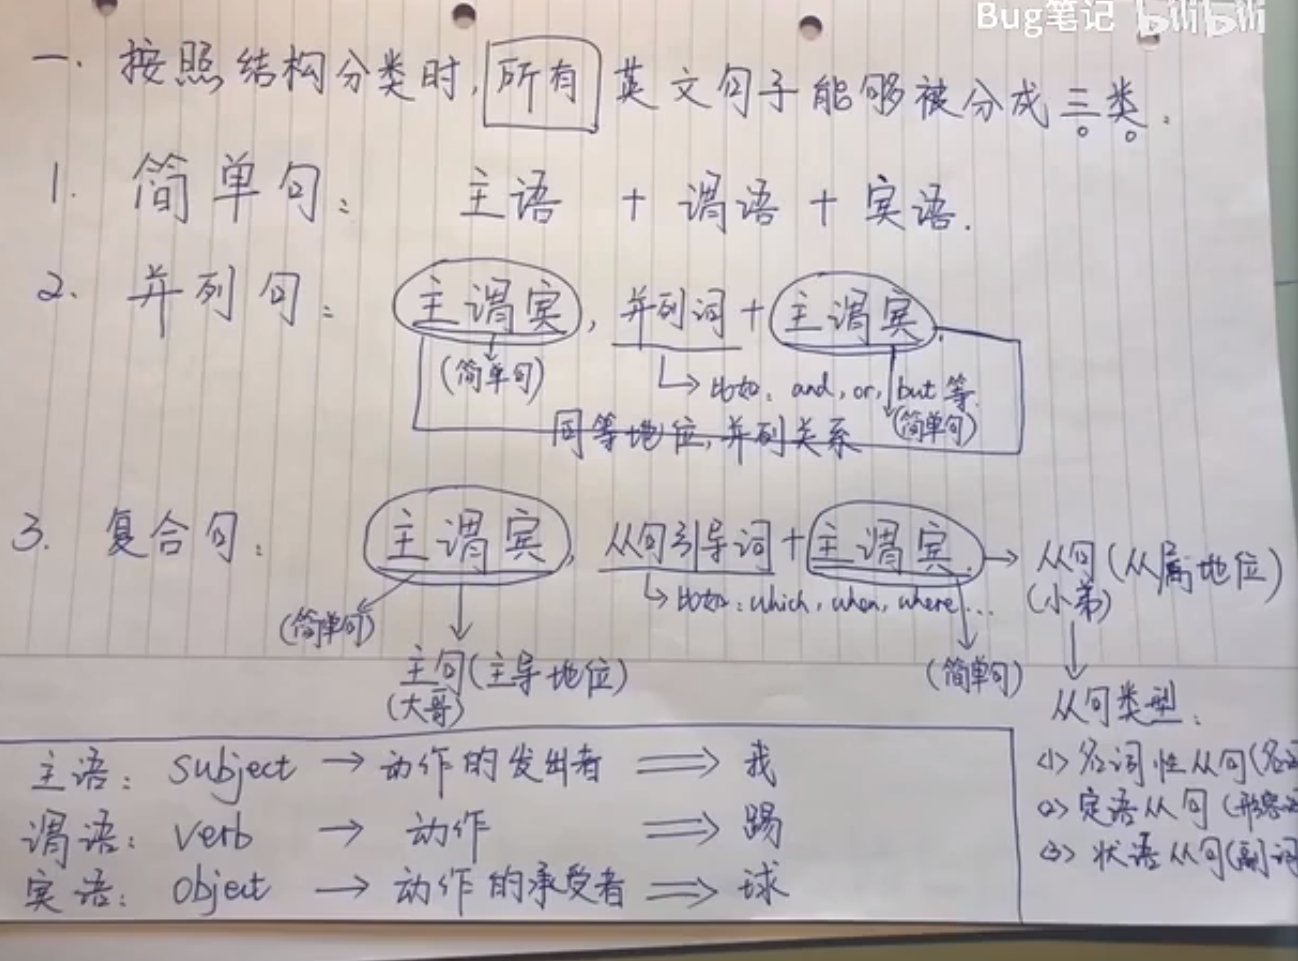 Bug笔记 bilibili
一. 按照结构分类时, 所有 英文句子能够被分成三类.
1. 简单句: 主语 + 谓语 + 宾语.
2. 并列句: 主谓宾, 并列词 + 主谓宾.
(简单句) 比如: and, or, but 等.
(简单句)
同等地位, 并列关系
3. 复合句: 主谓宾, 从句引导词 + 主谓宾. → 从句(从属地位)
(小弟)
比如: which, when, where...
(简单句)
主句(主导地位)
(大哥)
(简单句)
从句类型:
<1> 名词性从句(名词
<2> 定语从句(形容词
<3> 状语从句(副词
主语: subject → 动作的发出者 ⇒ 我
谓语: verb → 动作 ⇒ 踢
宾语: object → 动作的承受者 ⇒ 球